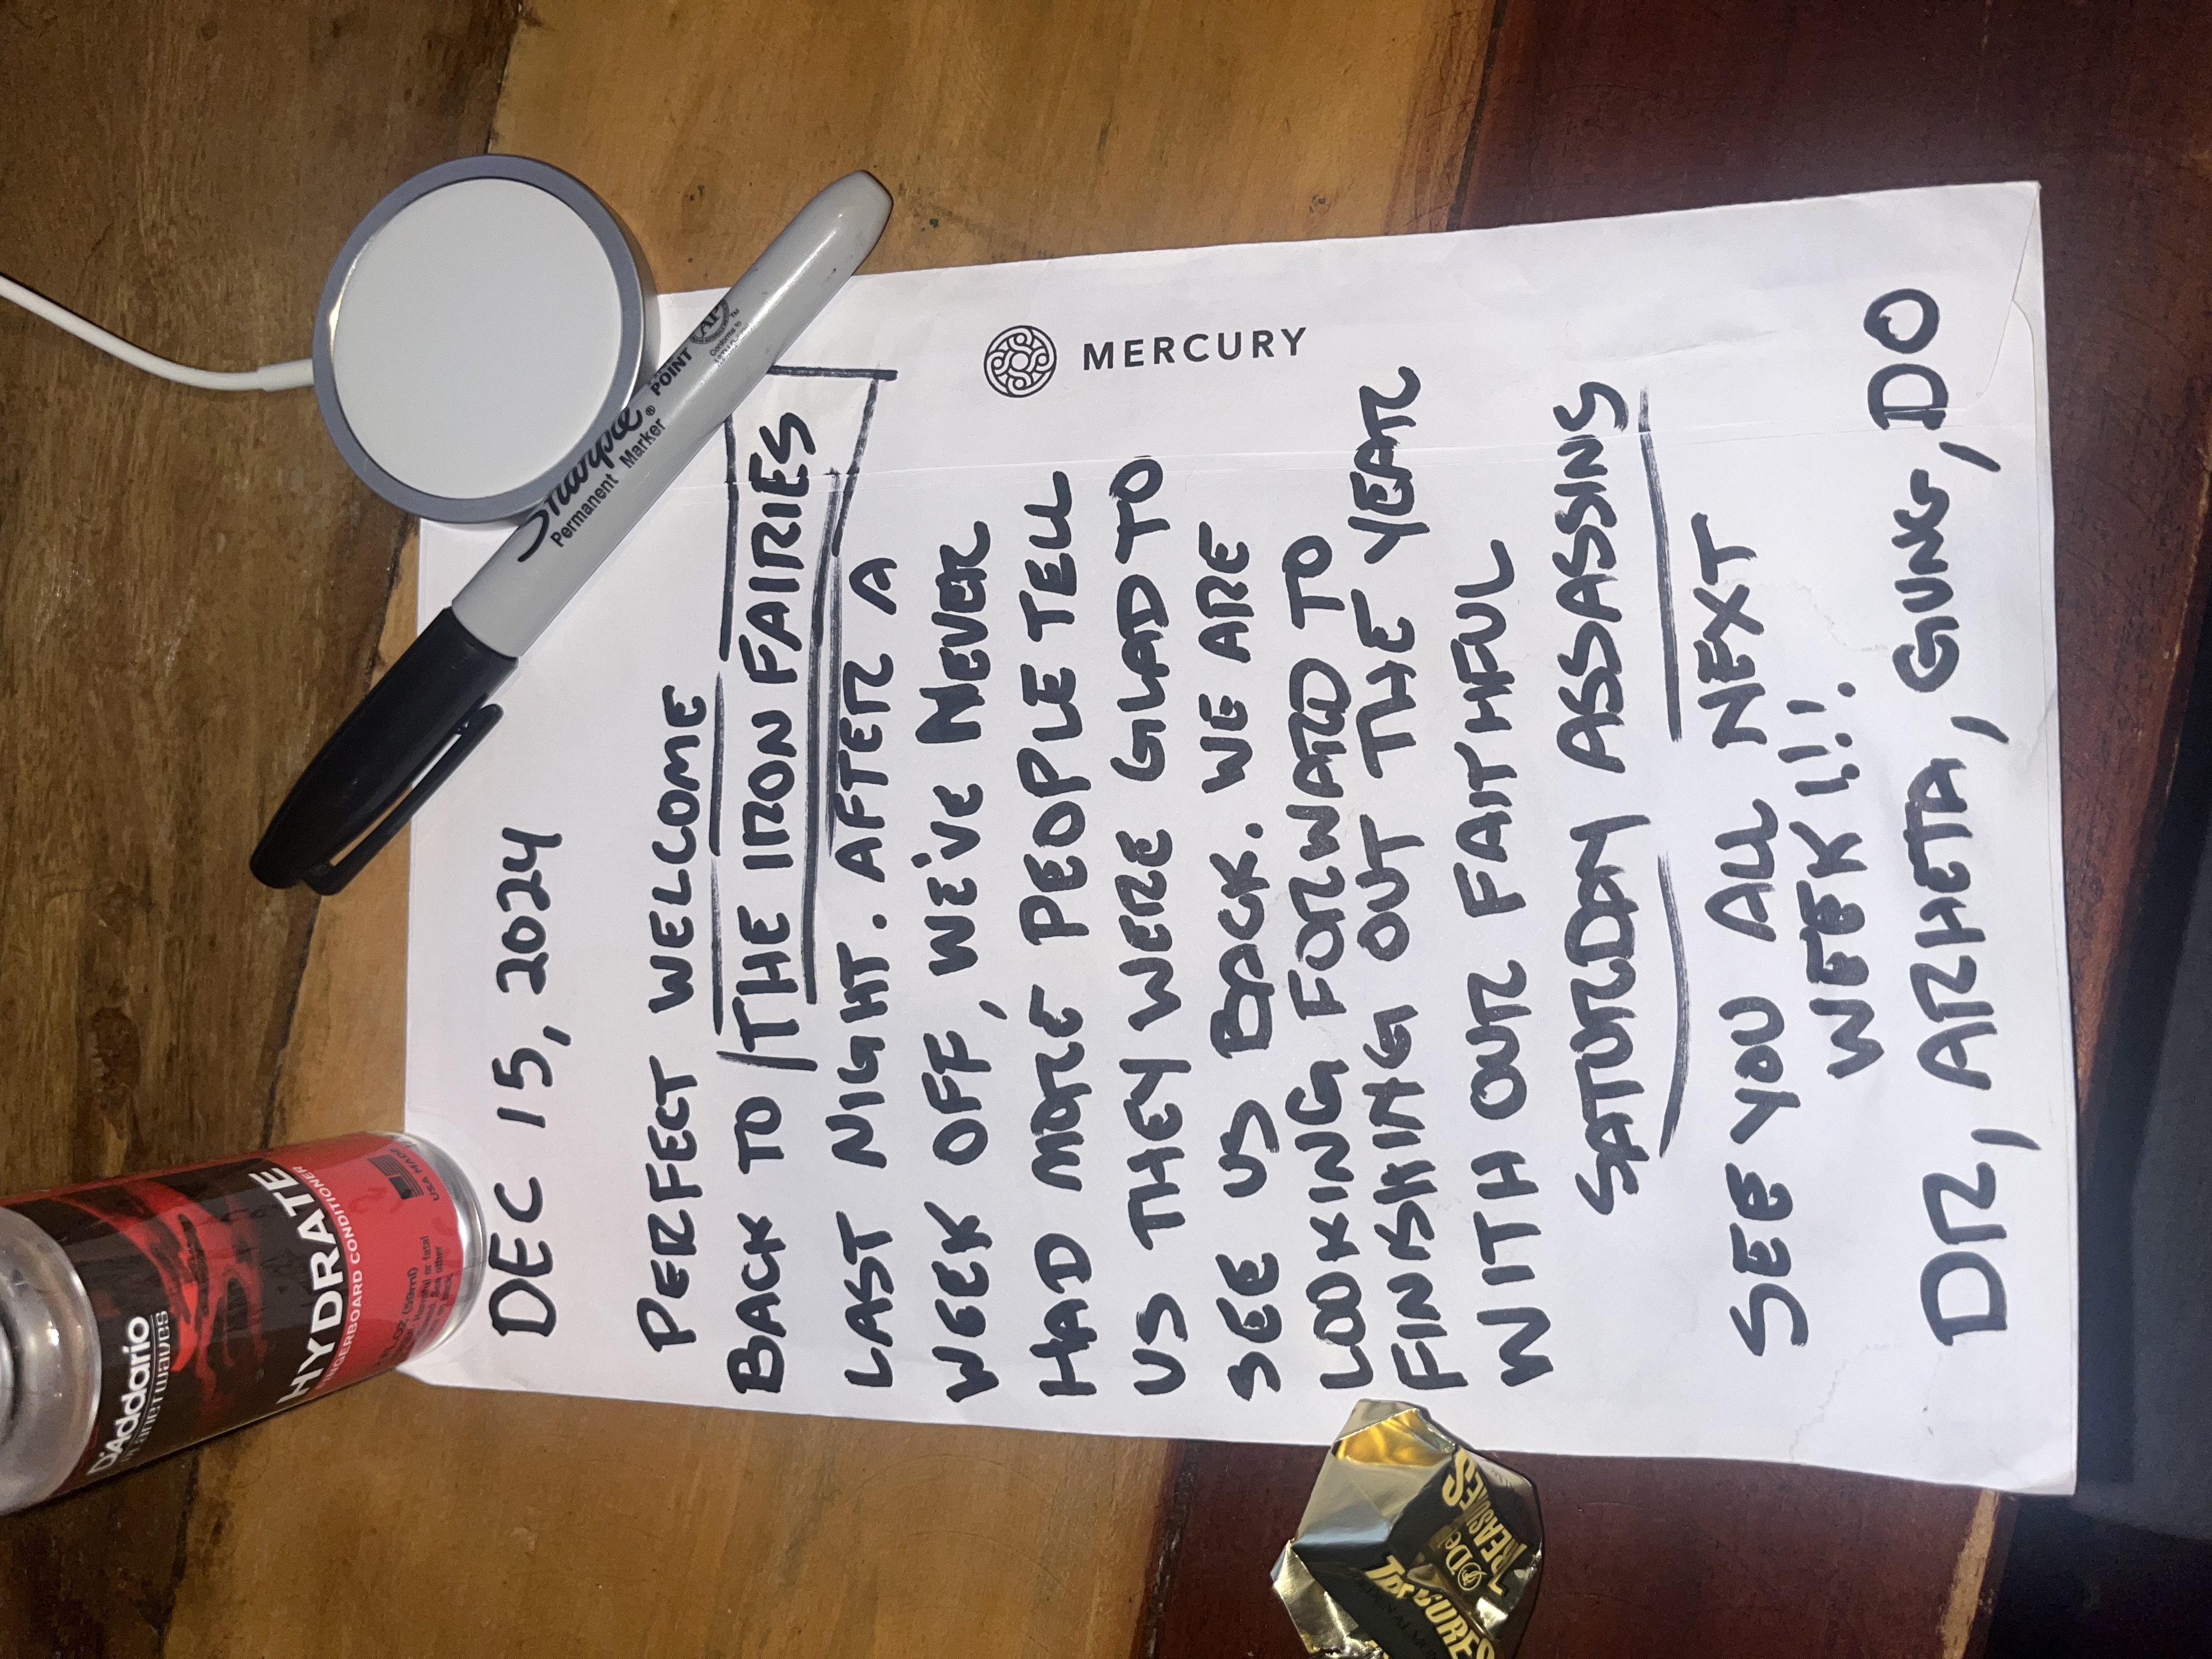 DEC 15, 2024
PERFECT WELCOME
BACK TO THE IRON FAIRIES
LAST NIGHT. AFTER A
WEEK OFF, WE'VE NEVER
HAD MORE PEOPLE TELL
US THEY WERE GLAD TO
SEE US BACK. WE ARE
LOOKING FORWARD TO
FINISHING OUT THE YEAR
WITH OUR FAITHFUL
SATURDAY ASSASSINS
SEE YOU ALL NEXT
WEEK!!!
DR, ARHETA, GUNG, DO
MERCURY
Sharpie®
POINT
Permanent Marker
AP
Conforms to
D'Addario
planet waves
HYDRATE
FINGERBOARD CONDITIONER
USA MADE
FL OZ (59ml)
Harmful or fatal
TREASURES
TREASURES